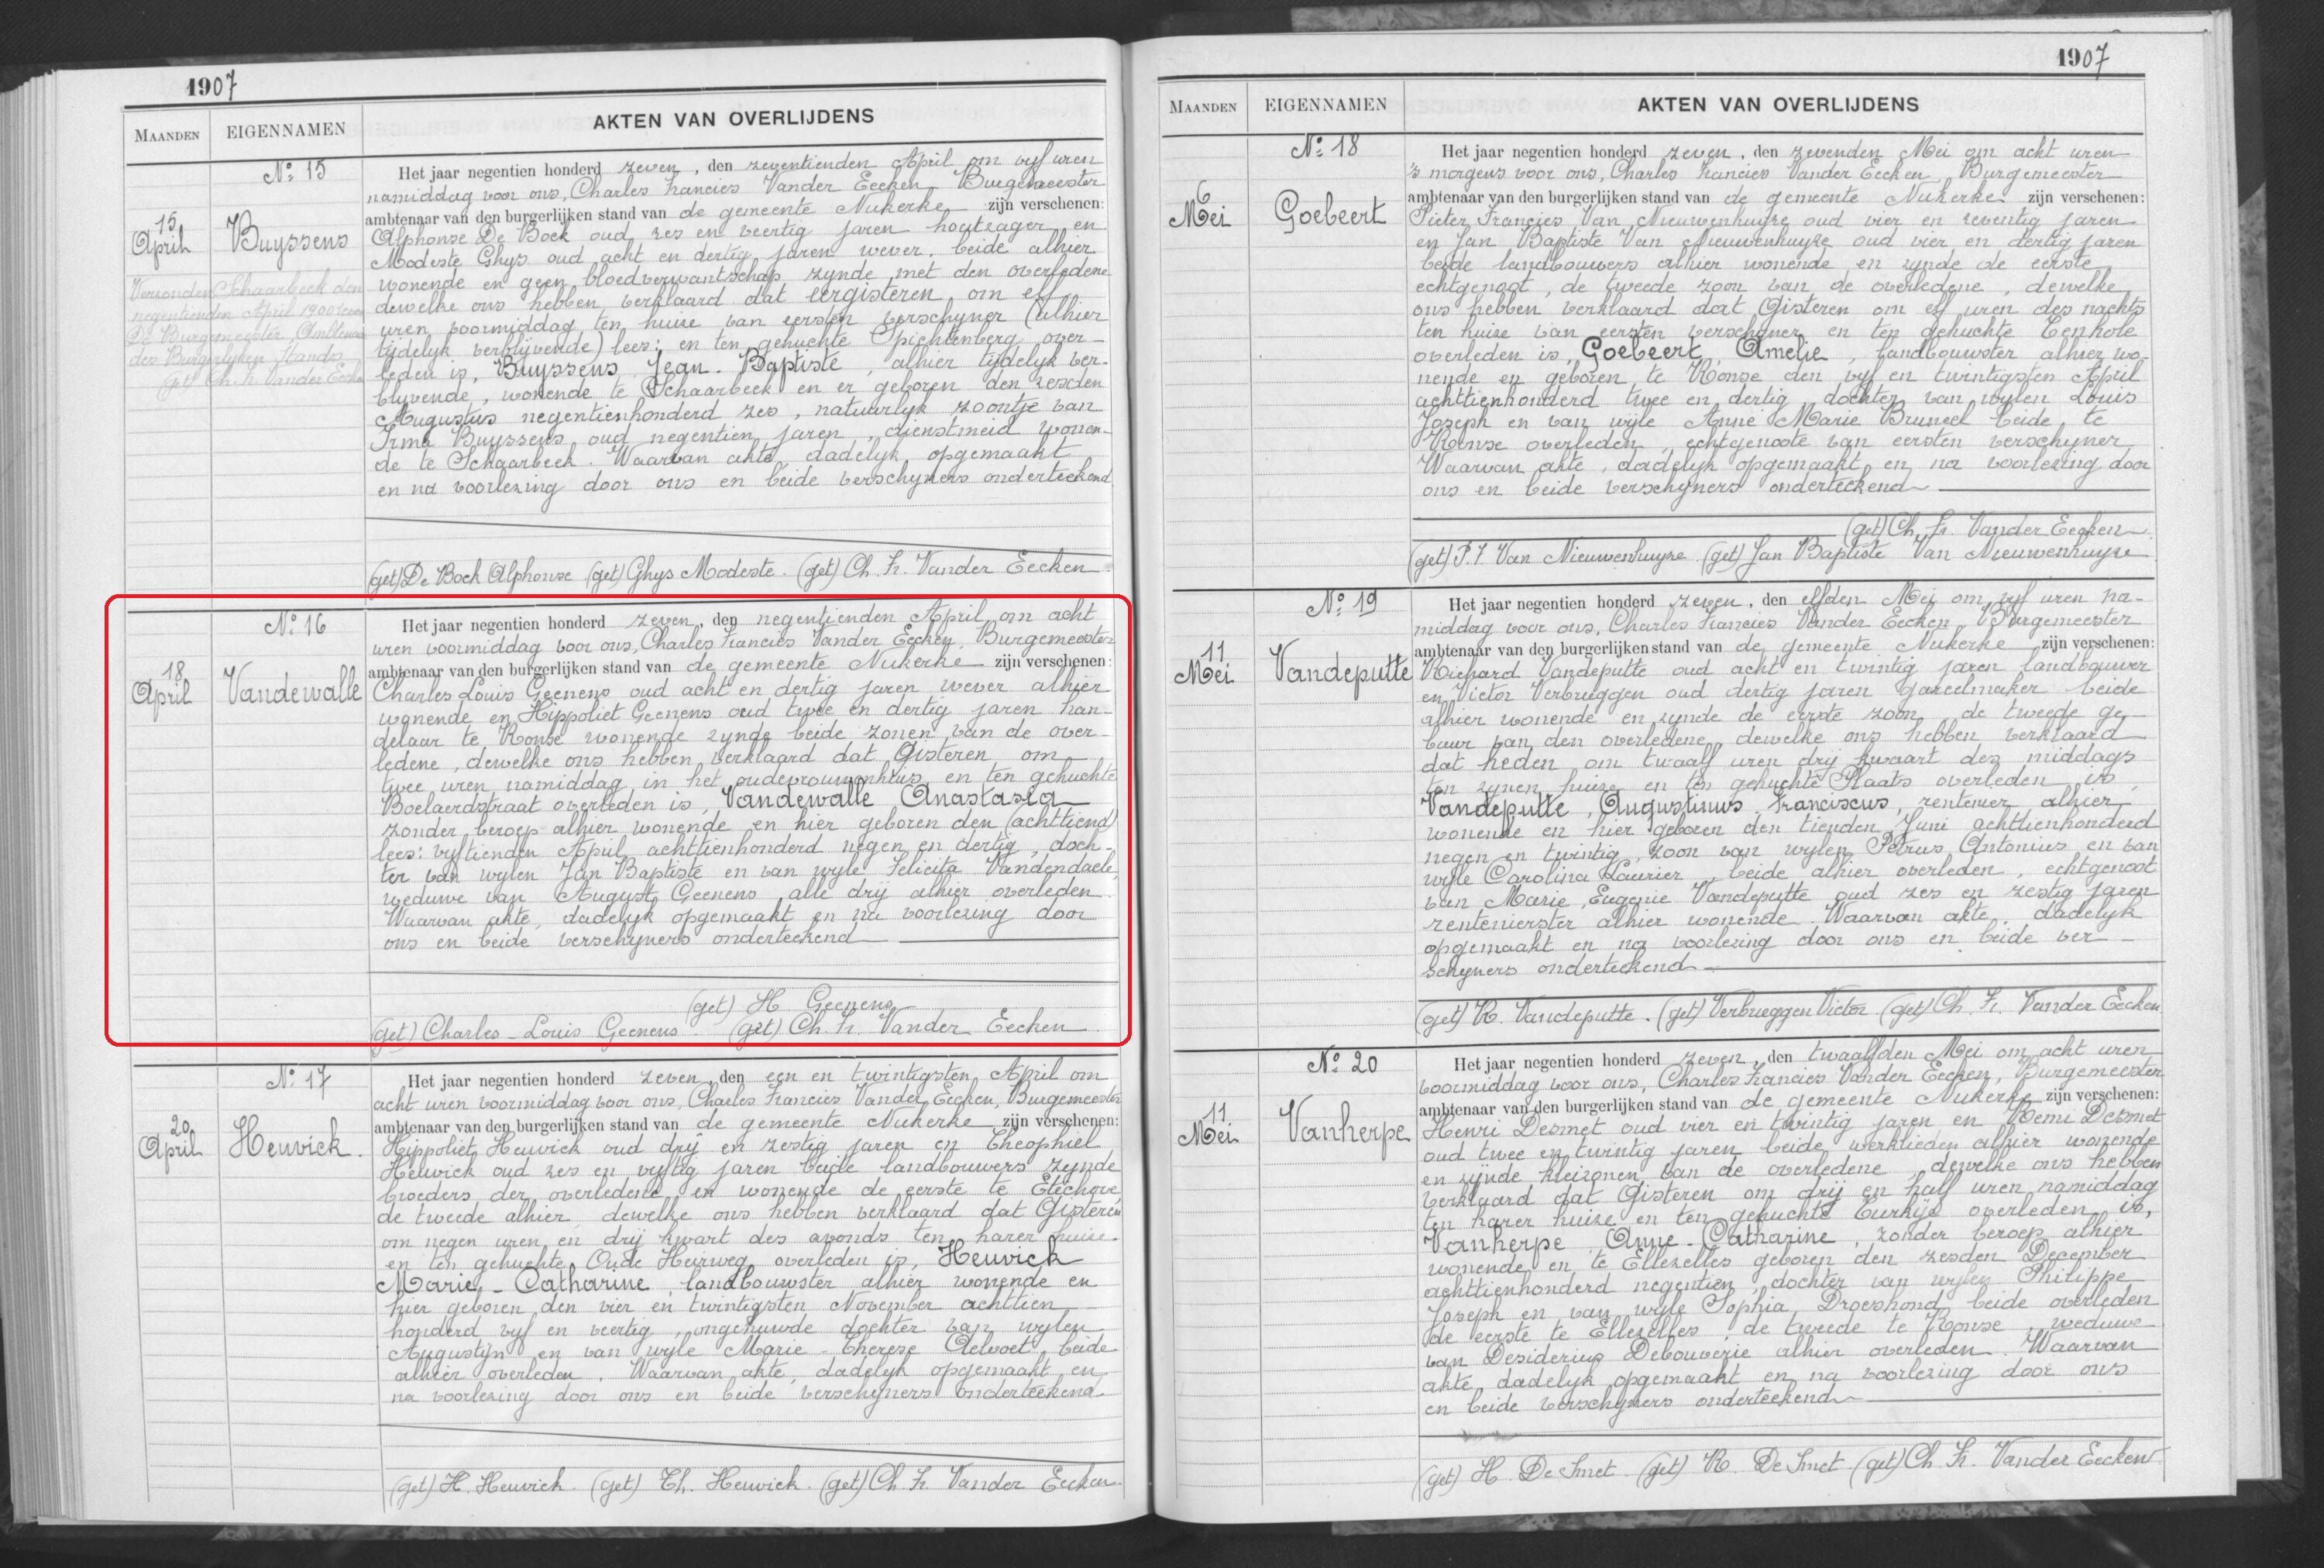 1907
MAANDEN EIGENNAMEN AKTEN VAN OVERLIJDENS
No: 15
15 April
Buyssens
Verzonden Schaarbeek den
negentienden April 1900 zeven
De Burgemeester, Ambtenaar
des Burgerlyken Stands
(get) Ch. Fr. Vander Eecken
Het jaar negentien honderd zeven, den zeventienden April om vyf uren
namiddag voor ons, Charles Francies Vander Eecken Burgemeester
ambtenaar van den burgerlijken stand van de gemeente Nukerke zijn verschenen:
Alphonse De Bock oud zes en veertig jaren houtzager en
Modeste Ghys oud acht en dertig jaren wever, beide alhier
wonende en geen bloedverwantschap zynde met den overledene
dewelke ons hebben verklaard dat eergisteren om elf
uren voormiddag ten huize van eersten verschyner (alhier
tydelyk verblyvende) lees: en ten gehuchte Spichtenberg over-
leden is, Buyssens Jean-Baptiste, alhier tydelyk ver-
blyvende, wonende te Schaarbeek en er geboren den zesden
Augustus negentienhonderd zes, natuurlyk zoontje van
Irma Buyssens oud negentien jaren, dienstmeid wonen-
de te Schaarbeek. Waarvan akte, dadelyk opgemaakt
en na voorlezing door ons en beide verschyners onderteekend
(get) De Bock Alphonse (get) Ghys Modeste. (get) Ch. Fr. Vander Eecken
No: 16
18 April
Vandewalle
Het jaar negentien honderd zeven, den negentienden April om acht
uren voormiddag voor ons, Charles Francies Vander Eecken, Burgemeester
ambtenaar van den burgerlijken stand van de gemeente Nukerke zijn verschenen:
Charles Louis Geenens oud acht en dertig jaren wever alhier
wonende en Hippoliet Geenens oud twee en dertig jaren han-
delaar te Ronse wonende zynde beide zonen van de over-
ledene, dewelke ons hebben verklaard dat Gisteren om
twee uren namiddag in het oudevrouwenhuis en ten gehuchte
Boelaerdstraat overleden is, Vandewalle Anastasia
zonder beroep alhier wonende en hier geboren den (achttiend)
lees: vyftienden April achttienhonderd negen en dertig, doch-
ter van wylen Jan Baptiste en van wyle Felicita Vandendaele,
weduwe van August Geenens alle drij alhier overleden.
Waarvan akte, dadelyk opgemaakt en na voorlezing door
ons en beide verschyners onderteekend
(get) H Geenens
(get) Charles-Louis Geenens. (get) Ch. Fr. Vander Eecken
No: 17
20 April
Heuvick.
Het jaar negentien honderd zeven, den een en twintigsten April om
acht uren voormiddag voor ons, Charles Francies Vander Eecken, Burgemeester
ambtenaar van den burgerlijken stand van de gemeente Nukerke zijn verschenen:
Hippoliet Heuvick oud drij en zestig jaren en Theophiel
Heuvick oud zes en vyftig jaren beide landbouwers zynde
broeders der overledene en wonende de eerste te Etichove
de tweede alhier dewelke ons hebben verklaard dat Gisteren
om negen uren en drij kwart des avonds ten harer huize
en ten gehuchte Oude Heirweg overleden is, Heuvick
Marie-Catharine, landbouwster alhier wonende en
hier geboren den vier en twintigsten November achttien
honderd vyf en veertig, ongehuwde dochter van wylen
Augustyn en van wyle Marie-Therese Aelvoet beide
alhier overleden. Waarvan akte, dadelyk opgemaakt en
na voorlezing door ons en beide verschyners onderteekend
(get) H. Heuvick. (get) Th. Heuvick. (get) Ch Fr. Vander Eecken
1907
MAANDEN EIGENNAMEN AKTEN VAN OVERLIJDENS
No: 18
6 Mei
Goebeert
Het jaar negentien honderd zeven, den zevenden Mei om acht uren
's morgens voor ons, Charles Francies Vander Eecken Burgemeester
ambtenaar van den burgerlijken stand van de gemeente Nukerke zijn verschenen:
Pieter Francies Van Nieuwenhuyze oud vier en zeventig jaren
en Jan Baptiste Van Nieuwenhuyze oud vier en dertig jaren
beide landbouwers alhier wonende en zynde de eerste
echtgenoot, de tweede zoon van de overledene, dewelke
ons hebben verklaard dat Gisteren om elf uren des nachts
ten huize van eersten verschyner en ten gehuchte Eenhole
overleden is, Goebeert, Amelie, landbouwster alhier wo-
nende en geboren te Ronse den vyf en twintigsten April
achttienhonderd twee en dertig dochter van wylen Louis
Joseph en van wyle Anne Marie Bruneel beide te
Ronse overleden, echtgenoote van eersten verschyner
Waarvan akte, dadelyk opgemaakt en na voorlezing door
ons en beide verschyners onderteekend
(get) Ch. Fr. Vander Eecken
(get) P. F Van Nieuwenhuyze (get) Jan Baptiste Van Nieuwenhuyze
No: 19
11 Mei
Vandeputte
Het jaar negentien honderd zeven, den elfden Mei om vyf uren na-
middag voor ons, Charles Francies Vander Eecken, Burgemeester
ambtenaar van den burgerlijken stand van de gemeente Nukerke zijn verschenen:
Richard Vandeputte oud acht en twintig jaren landbouwer
en Victor Verbrueggen oud dertig jaren gareelmaker beide
alhier wonende en zynde de eerste zoon, de tweede ge-
buur van den overledene, dewelke ons hebben verklaard
dat heden om twaalf uren drij kwaart des middags
ten zynen huize en ten gehuchte Plaats overleden is,
Vandeputte, Augustinus, Franciscus, rentenier alhier
wonende en hier geboren den tienden Juni achttienhonderd
negen en twintig, zoon van wylen Petrus Antonius en van
wyle Carolina Laurier, beide alhier overleden, echtgenoot
van Marie Eugenie Vandeputte oud zes en zestig jaren
rentenierster alhier wonende. Waarvan akte, dadelyk
opgemaakt en na voorlezing door ons en beide ver-
schyners onderteekend
(get) R. Vandeputte. (get) Verbrueggen Victor (get) Ch. Fr. Vander Eecken
No: 20
11 Mei
Vanherpe
Het jaar negentien honderd zeven, den twaalfden Mei om acht uren
voormiddag voor ons, Charles Francies Vander Eecken, Burgemeester
ambtenaar van den burgerlijken stand van de gemeente Nukerke zijn verschenen:
Henri Desmet oud vier en twintig jaren en Remi Desmet
oud twee en twintig jaren beide werklieden alhier wonende
en zijnde kleizonen van de overledene, dewelke ons hebben
verklaard dat Gisteren om drij en half uren namiddag
ten harer huize en ten gehuchte Turkije overleden is,
Vanherpe Anne-Catharine, zonder beroep alhier
wonende en te Ellezelles geboren den zesden December
achttienhonderd negentien, dochter van wylen Philippe
Joseph en van wyle Sophia Droeshond, beide overleden
de eerste te Ellezelles, de tweede te Ronse, weduwe
van Desiderius Debouverie alhier overleden. Waarvan
akte, dadelyk opgemaakt en na voorlezing door ons
en beide verschyners onderteekend
(get) H. De Smet. (get) R. De Smet (get) Ch. Fr. Vander Eecken